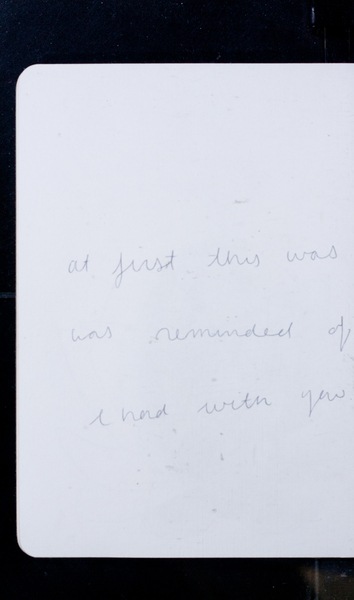 at first this was
was reminded of
I had with you